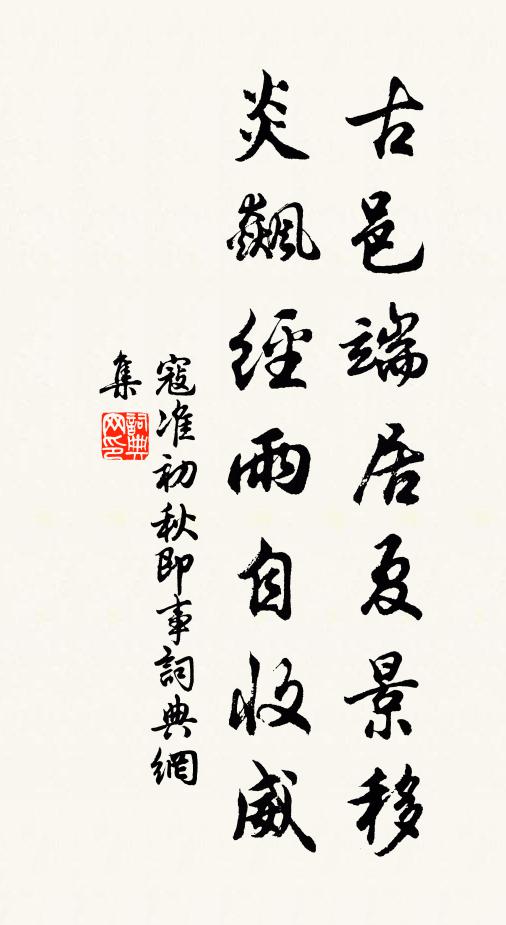 古邑端居夏景移
炎飙經雨自收威
寇准初秋即事詞典網
集
詞典
网印